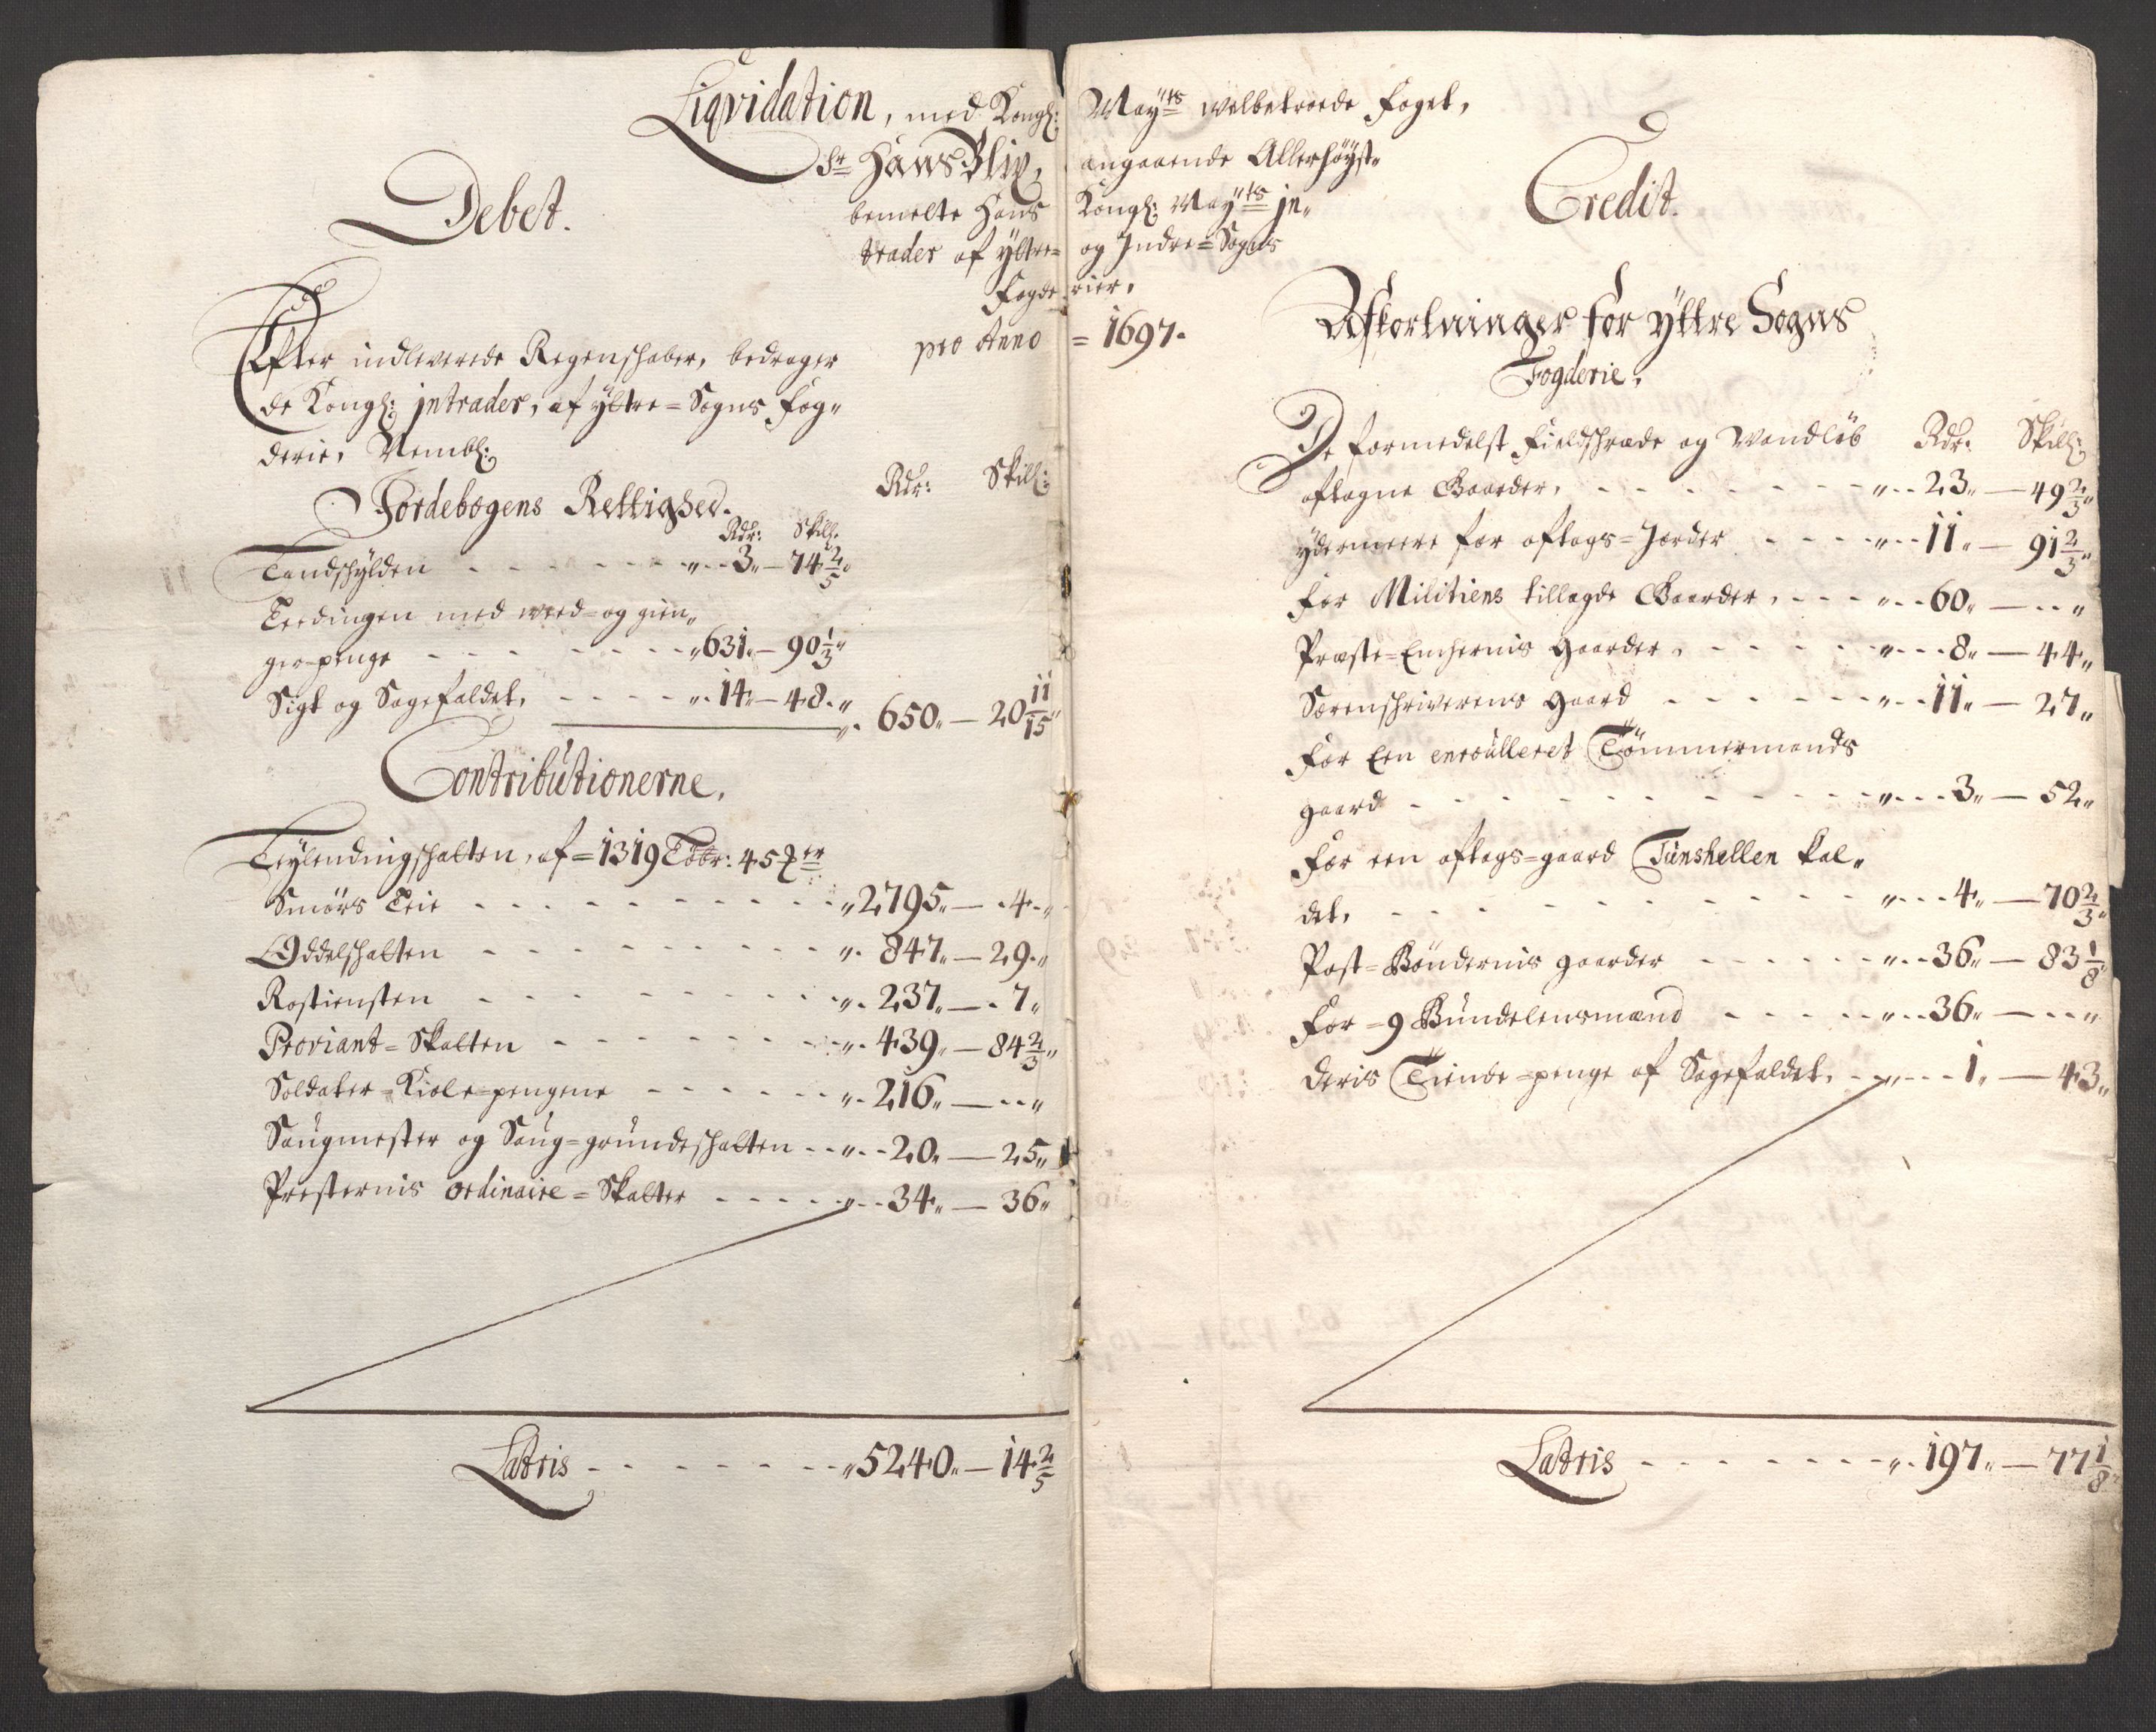 Liqvidation, med Kongl: Mayts welbetroede foget,
Sr Hans Blix, angaaende Allerhöyst„
bemelte Hans Kongl: Mayts jn„
trader af yttre= og Indre=Sogns
fogderier,
pro Anno = 1697.
Debet.
Efter indleverede Regenschaber, bedrager
de Kongl: jntrader, af yttre=Sogns fog„
derie, Nembl:
Rdr: Skill:
Jordebogens Rettighed.
Rdr: Skill:
Landschylden - - - „--3„—74 2/5„
Leedingen med weed=og gien„
gierpenge - - - „631„—90 1/3„
Sigt og Sagefaldet, - - - „.14„—48.„ „. 650„—20 11/15„
Contributionerne.
Leylendingschatten, af=1319 Löbr: 45 ter
Smörs Leie - - - „2795„—.4.„
Oddelschatten - - - „. 847„—29.„
Rostiensten - - - „. 237„—.7„
Proviant=Skatten - - - „. 439„—84 2/3„
Soldater=Kiole=pengene - - - „. 216„—..„
Saugmester og Saug=grundeschatten - - „--20„—25„
Presternis ordinaire=Skatter - - - „--34„—36„
Latris - - - „5240„—14 2/5
Credit.
Afkortninger for yttre Sogns
Fogderie,
De formedelst Fieldschrede og Wandlöb Rdr: Skill:
aftagne Gaarder, - - - „--23„—49 2/3„
ydermeere for aftags=Jorder - - - „--11„—91 2/3„
for Militiens tillagde Gaarder, - - - „--60„—..„
Præste=Enchernis Gaarder, - - - „---8„—44„
Sorenschriverens Gaard - - - „--11„—27„
For Een enroulleret Tömmermands
gaard - - - „---3„—52„
For een aftags=gaard Tunshellen kal„
det, - - - „---4„—70 2/3„
Post=Böndernis gaarder - - - „--36„—83 1/8„
For=9 Bundelensmænd - - - „--36„—..„
deris Tiende=penge af Sagefaldet, - - „---1„—43„
Latris - - - „. 197„—77 1/8„